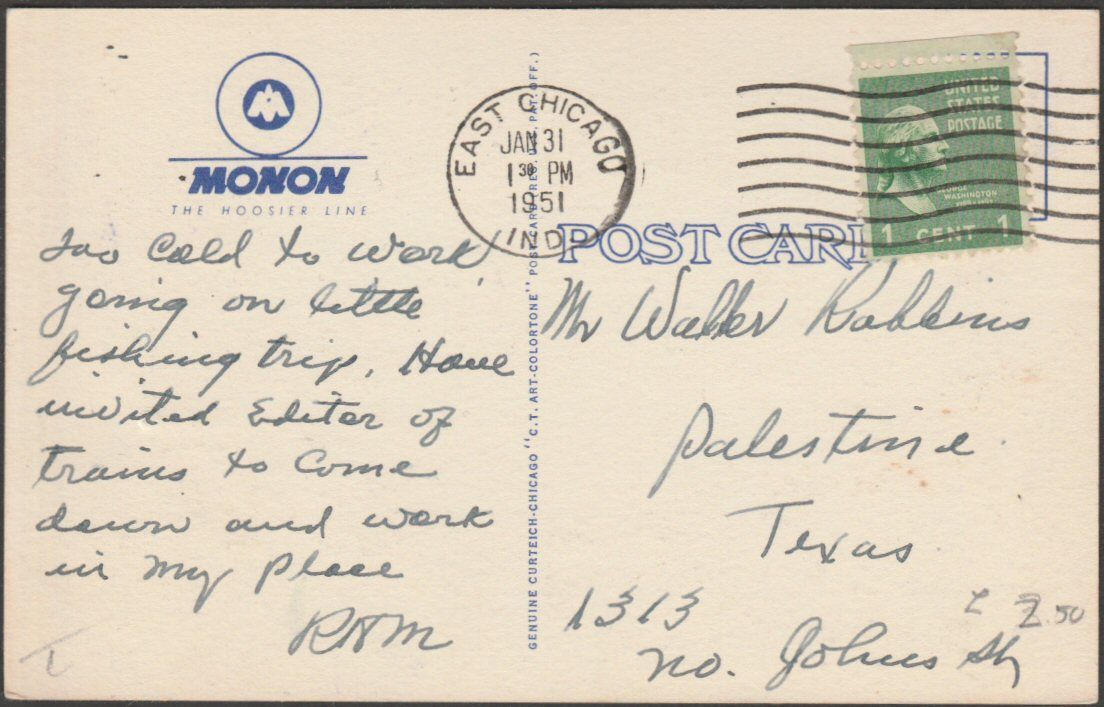 MONON
THE HOOSIER LINE
Too Cold to work
going on little
fishing trip, Have
invited Editor of
trains to Come
down and work
in My Place
RHM
GENUINE CURTEICH-CHICAGO "C.T. ART-COLORTONE" POST CARD (REG. U.S. PAT. OFF.)
EAST CHICAGO
JAN 31
1 30 PM
1951
IND.
UNITED
STATES
POSTAGE
GEORGE
WASHINGTON
1 CENT 1
POST CARD
Mr Walter Robbins
Palestine
Texas
1313
No. Johns St
2.50